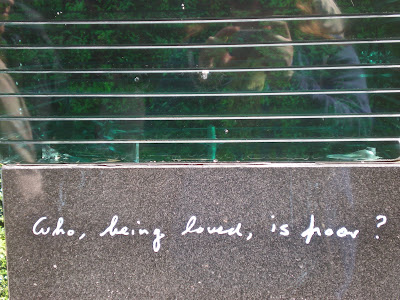 Who, being loved, is poor?